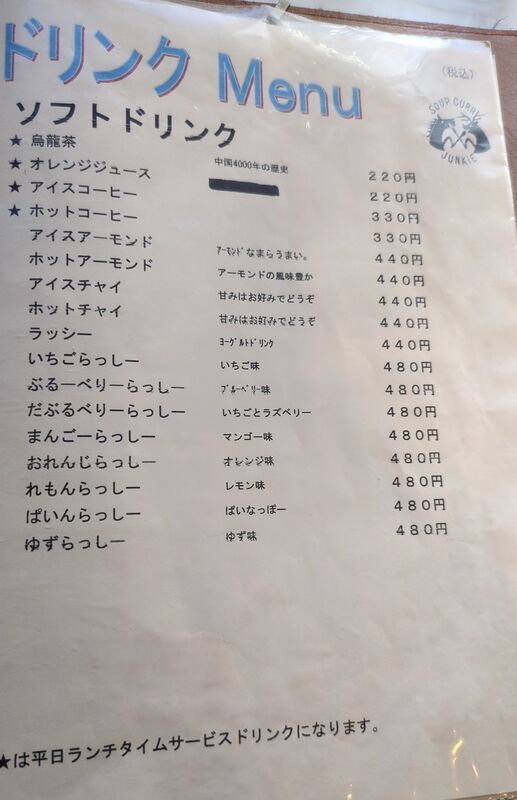 ドリンク Menu
(税込)
SOUP CURRY
JUNKIE
ソフトドリンク
★ 烏龍茶 中国4000年の歴史 220円
★ オレンジジュース 220円
★ アイスコーヒー 330円
★ ホットコーヒー 330円
アイスアーモンド ｱｰﾓﾝﾄﾞなまらうまい。 440円
ホットアーモンド アーモンドの風味豊か 440円
アイスチャイ 甘みはお好みでどうぞ 440円
ホットチャイ 甘みはお好みでどうぞ 440円
ラッシー ﾖｰｸﾞﾙﾄﾄﾞﾘﾝｸ 440円
いちごらっしー いちご味 480円
ぶるーべりーらっしー ﾌﾞﾙｰﾍﾞﾘｰ味 480円
だぶるべりーらっしー いちごとラズベリー 480円
まんごーらっしー マンゴー味 480円
おれんじらっしー オレンジ味 480円
れもんらっしー レモン味 480円
ぱいんらっしー ぱいなっぽー 480円
ゆずらっしー ゆず味 480円
★は平日ランチタイムサービスドリンクになります。